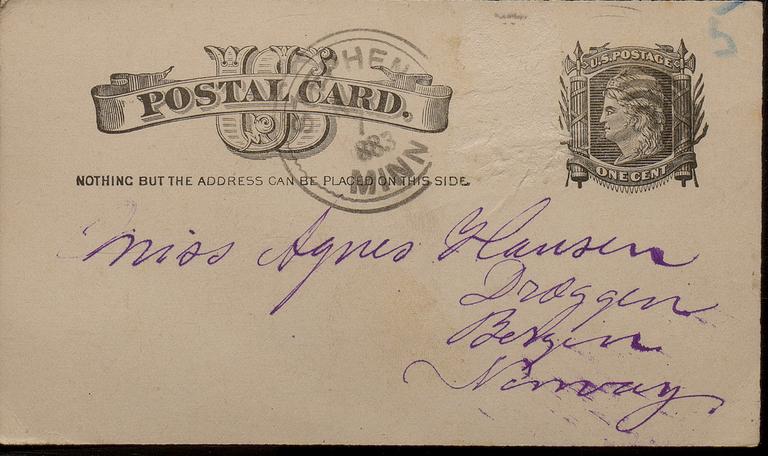 US
POSTAL CARD.
PHEN
1883
MINN
U.S. POSTAGE
ONE CENT
NOTHING BUT THE ADDRESS CAN BE PLACED ON THIS SIDE.
Miss Agnes Hansen
Dræggen
Bergen
Norway.